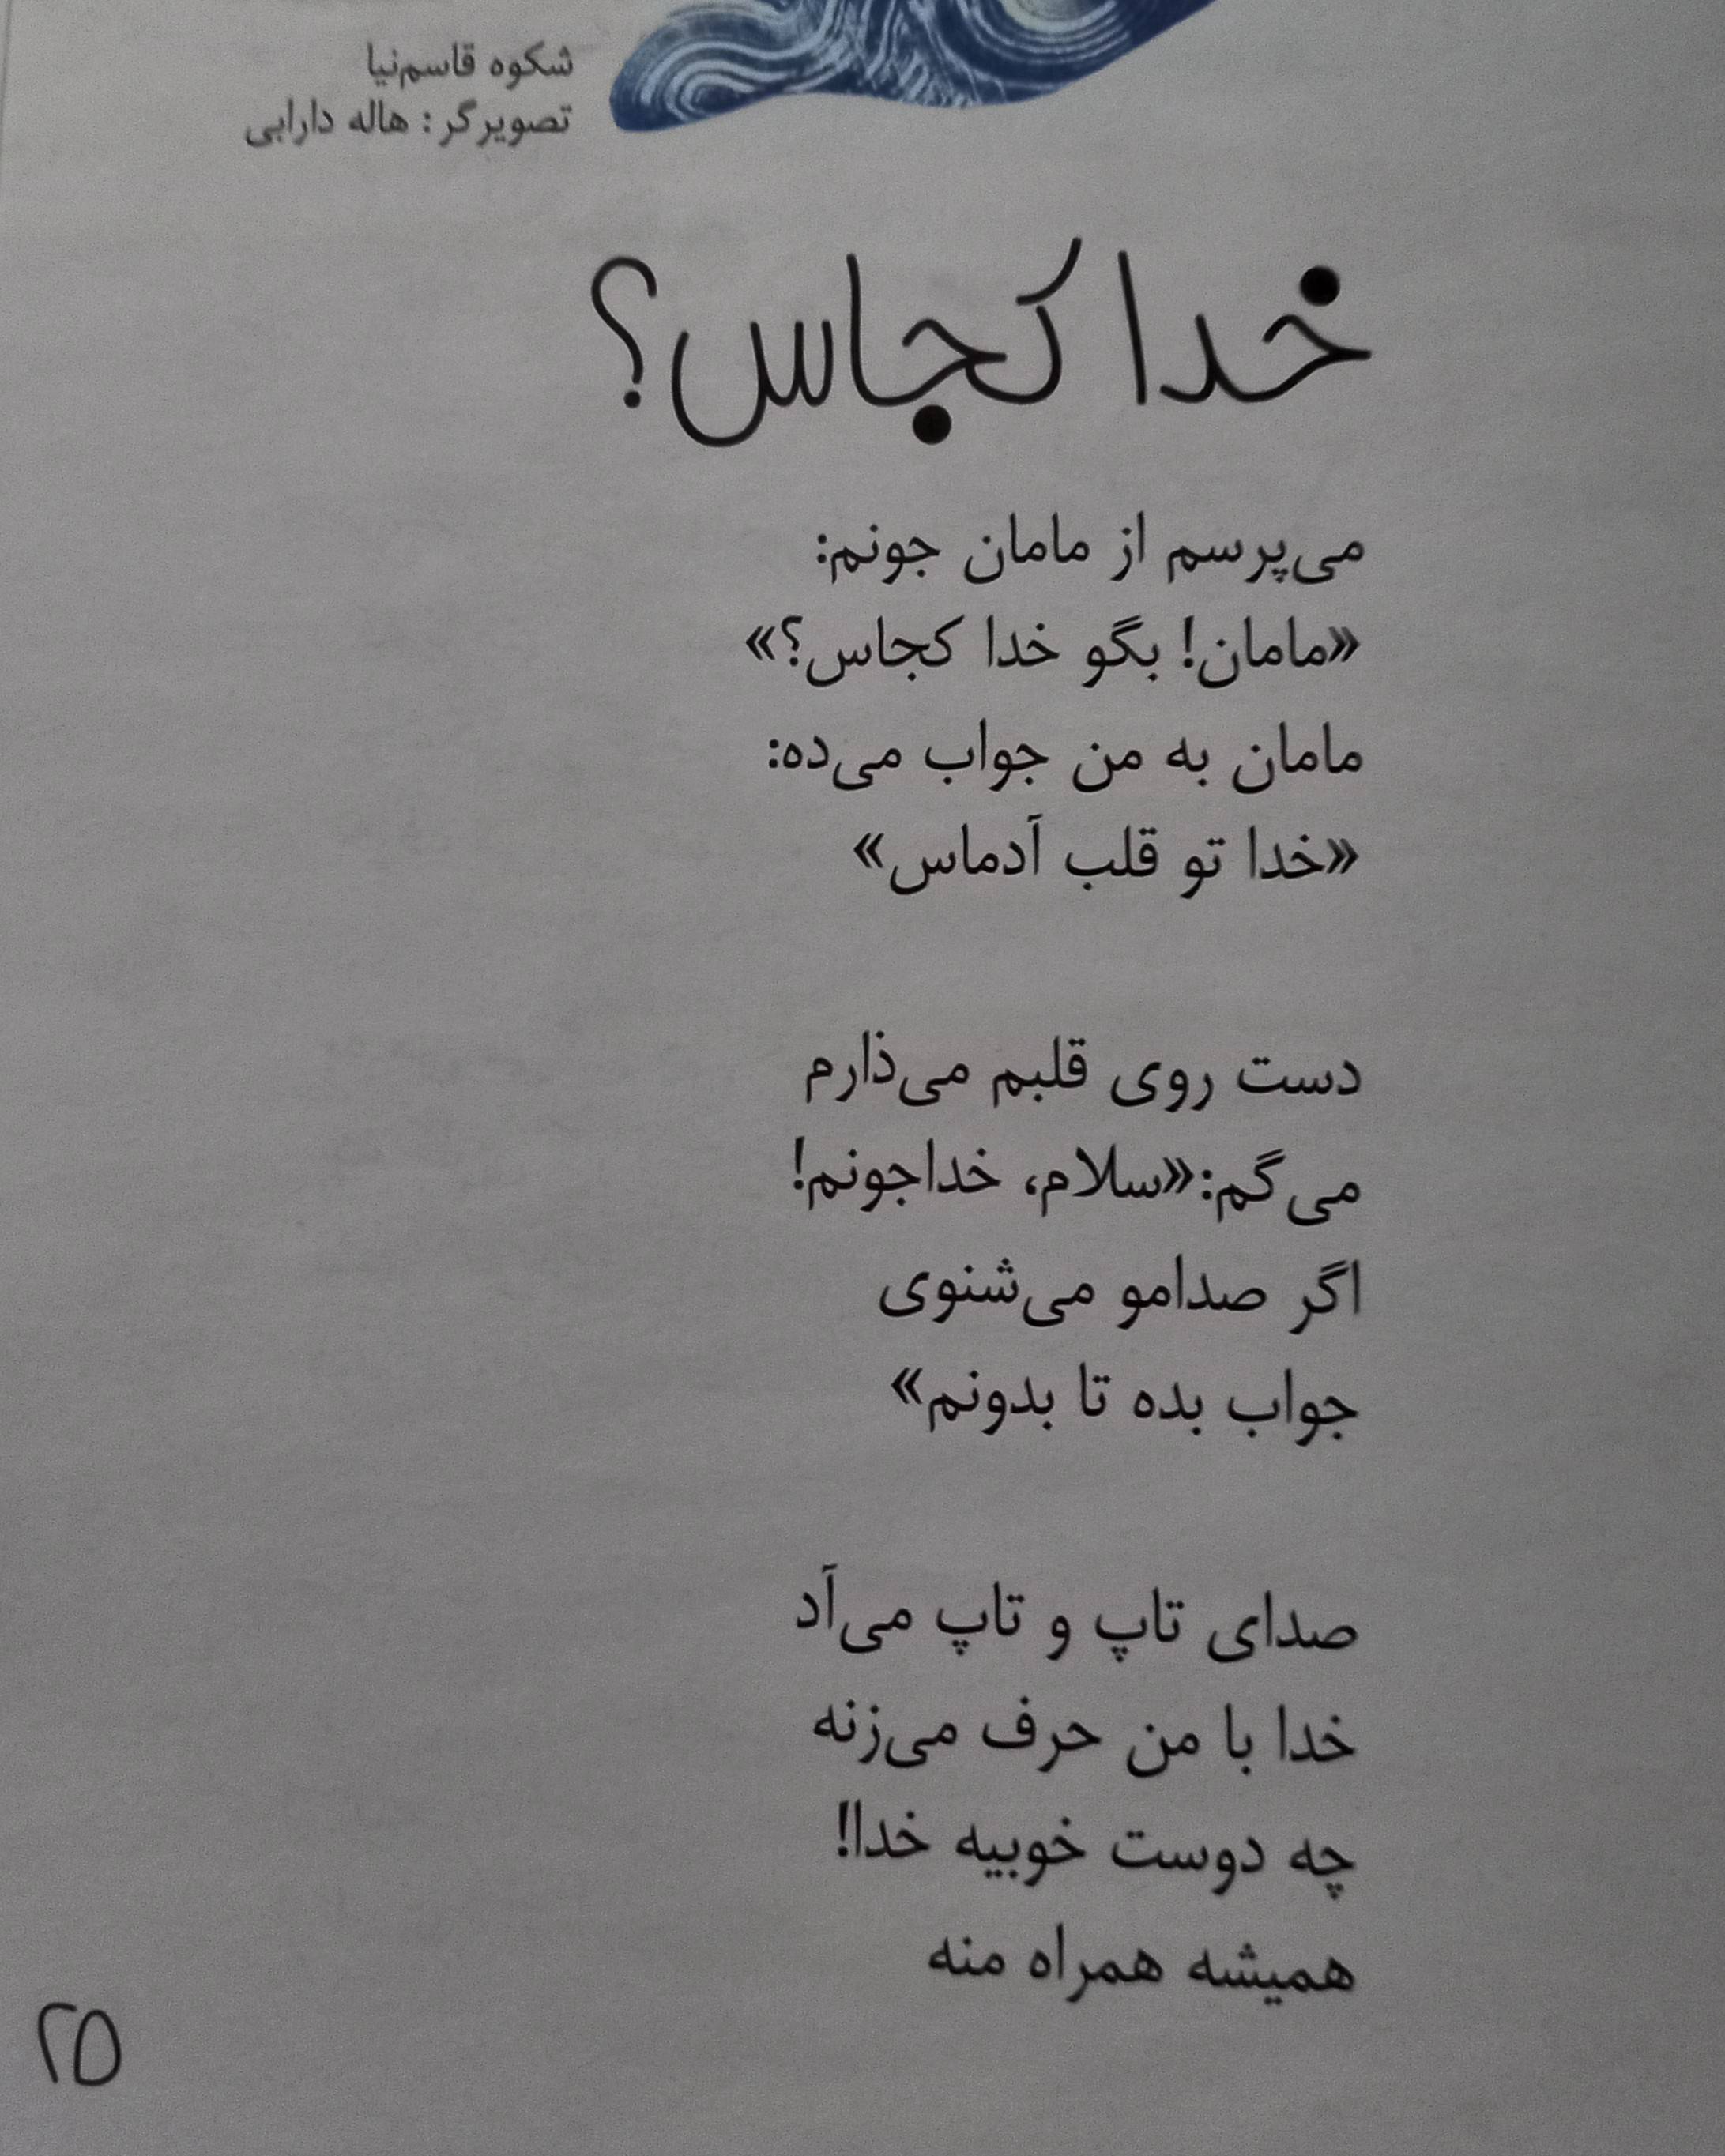 شکوه قاسم‌نیا
تصویرگر: هاله دارابی
خدا کجاس؟
می‌پرسم از مامان جونم:
«مامان! بگو خدا کجاس؟»
مامان به من جواب می‌ده:
«خدا تو قلب آدماس»
دست روی قلبم می‌ذارم
می‌گم:«سلام، خداجونم!
اگر صدامو می‌شنوی
جواب بده تا بدونم»
صدای تاپ و تاپ می‌آد
خدا با من حرف می‌زنه
چه دوست خوبیه خدا!
همیشه همراه منه
۲۵